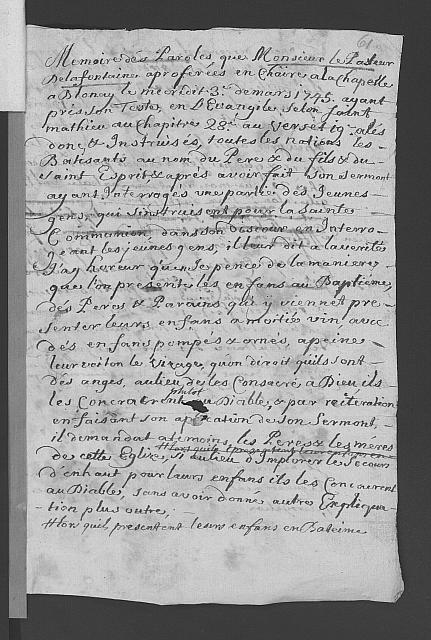 61
Memoire dés Paroles que Monsieur le Pasteur
Delafontaine a proferées en Chaire a la Chapelle
a Blonay le mecrdit 3.e de mars 1745. ayant
pris son Texte, en L'Evangile selon Saint
mathieu au Chapitre 28.e au verset 19.e alés
donc & Instruisés, toutes les nations les
Batisants au nom du Pere & du fils & du
saint Esprit & aprés avoir fait son sermont
ayant Interrogés une partie dés Jeunes
gens, qui s'instruisent pour la sainte
Communion dans son discour en Interro-
geant les jeunes gens, il leur dit a la verité
J'ay horeur quan Je pence de la maniere
que l'on presente les enfans au Baptème
dés Peres & Parains qui y viennet pre-
senter leurs enfans a moitié vin, avec
dés enfans pompés & ornés, apeine
leur voit on le visage, quon diroit quils sont
des anges, au lieu de les Consacrer a Dieu ils
plutot
les Concracrent au Diable, & par réiteration
en faisant son aplication de son Sermont,
il demandat a temoins, les Peres & les méres
de cette Eglise, si au lieu d'Implorer le Secours
d'enhaut pour leurs enfans ils les Concacrent
au Diable, sans avoir donné autre Explica-
tion plus outre,
# lors quil presentent leurs enfans en Bateime